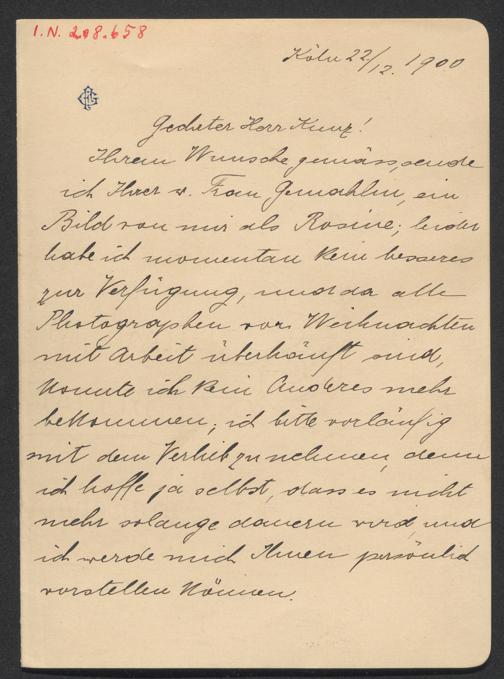 I.N. 208.658
Köln 22/12. 1900
Geehrter Herr Kunz!
Ihrem Wunsche gemäss, sende
ich Ihrer w. Frau Gemahlin, ein
Bild von mir als Rosine; leider
habe ich momentan kein besseres
zur Verfügung, und da alle
Photographen vor Weihnachten
mit Arbeit überhäuft sind,
konnte ich kein Anderes mehr
bekommen; ich bitte vorläufig
mit dem Verlieb zu nehmen, denn
ich hoffe ja selbst, dass es nicht
mehr solange dauern wird, und
ich werde mich Ihnen persönlich
vorstellen können.